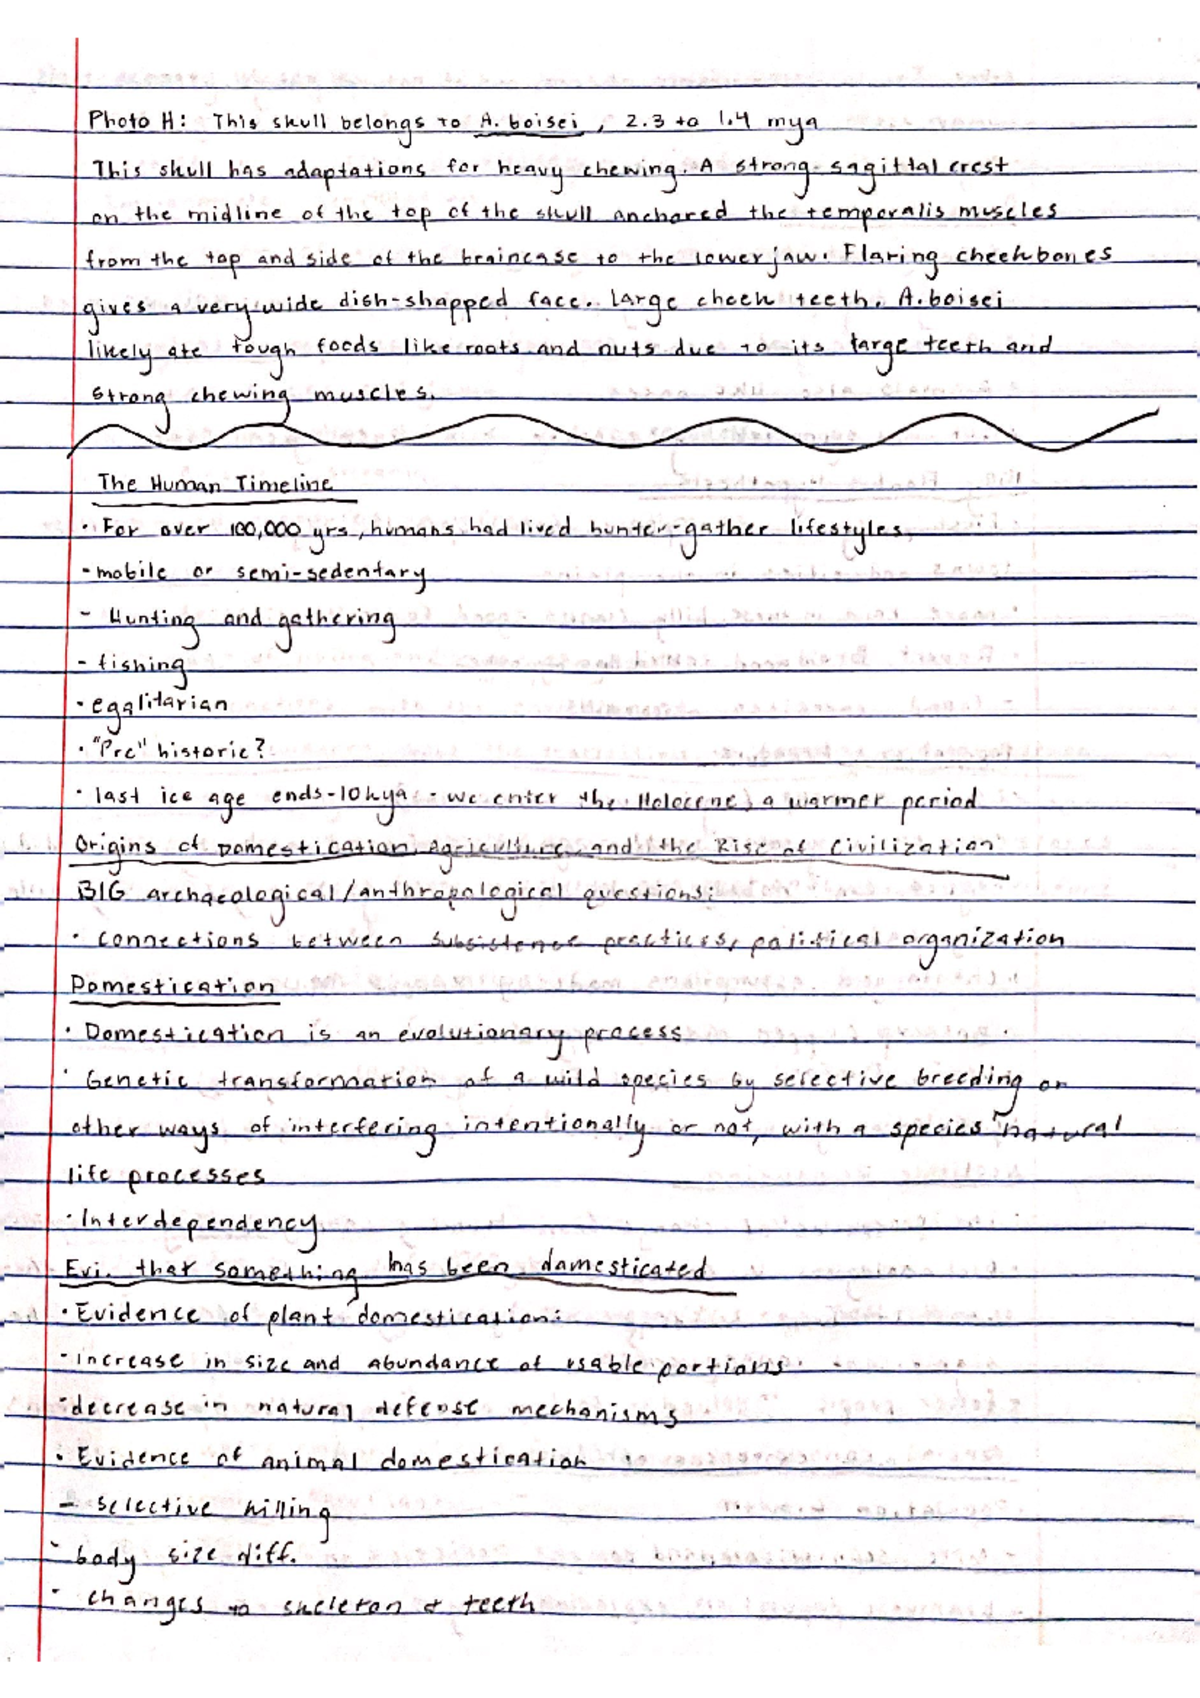 Photo H: This skull belongs to A. boisei, 2.3 to 1.4 mya
This skull has adaptations for heavy chewing. A strong sagittal crest
on the midline of the top of the skull anchored the temporalis muscles
from the top and side of the braincase to the lower jaw. Flaring cheekbones
gives a very wide dish-shapped face. Large cheek teeth. A. boisei
likely ate tough foods like roots and nuts due to its large teeth and
strong chewing muscles.
The Human Timeline
· For over 100,000 yrs, humans had lived hunter-gather lifestyles
- mobile or semi-sedentary
- Hunting and gathering
- fishing
· egalitarian
· "Pre" historic?
· last ice age ends - 10kya - we enter the Holocene, a warmer period
Origins of Domestication, Agriculture, and the Rise of Civilization
BIG archaeological/anthropological questions:
· connections between subsistence practices, political organization
Domestication
· Domestication is an evolutionary process
· Genetic transformation of a wild species by selective breeding or
other ways of interfering intentionally or not, with a species natural
life processes
· Interdependency
Evi. that something has been domesticated
· Evidence of plant domestication:
- increase in size and abundance of usable portions
- decrease in natural defense mechanisms
· Evidence of animal domestication
- selective killing
- body size diff.
- changes to skeleton & teeth